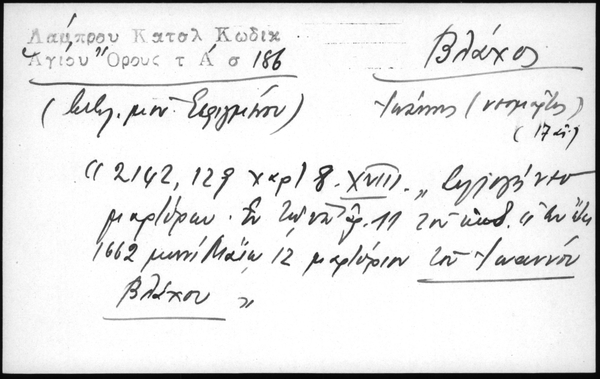 Λάμπρου Κατσλ Κωδικ
Ἁγίου Ὄρους τ Α΄ σ 186
Βλάχος
(βιβλ. μον. Ἐσφιγμένου)
Ἰωάννης (νεομάρτυς)
(17 αἰ.)
« 2142, 129 χαρτ 8. XVIII. „ Συλλογὴ νεο
μαρτύρων. Ἐν τῷ ὑπ' ἀρ. 11 τοῦ κωδ. « Ἐν ἔτει
1662 μηνὶ Μαΐῳ 12 μαρτύριον τοῦ Ἰωάννου
Βλάχου »